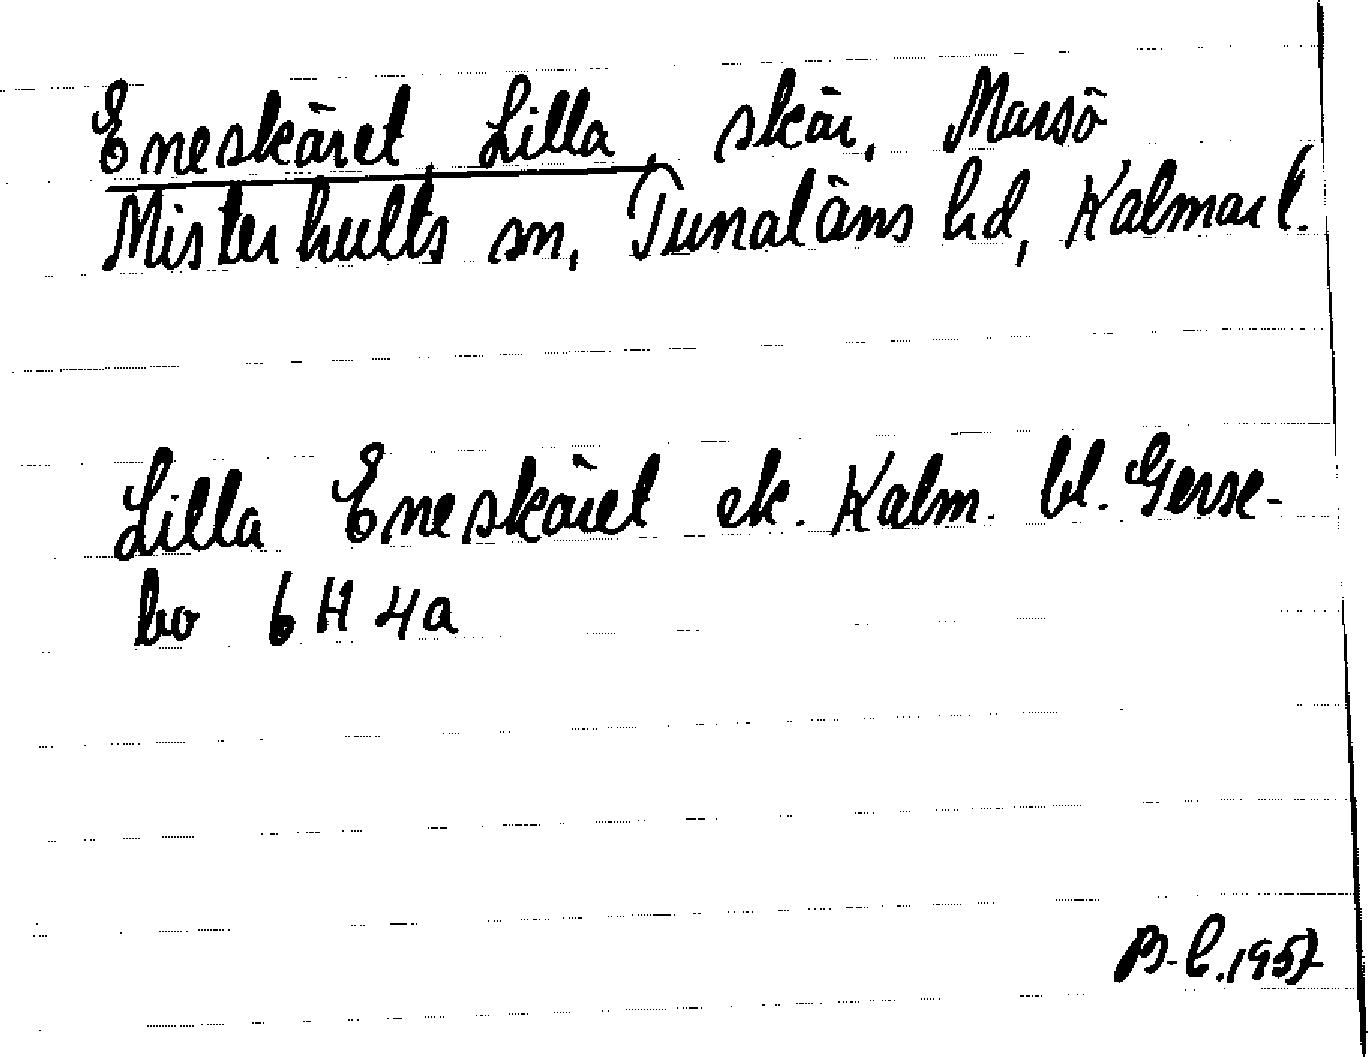 Eneskäret, Lilla, skär, Marsö
Misterhults sn, Tunaläns hd, Kalmar l.
Lilla Eneskäret ek. Kalm. bl. Gerse-
bo 6H 4a
B-C. 1957